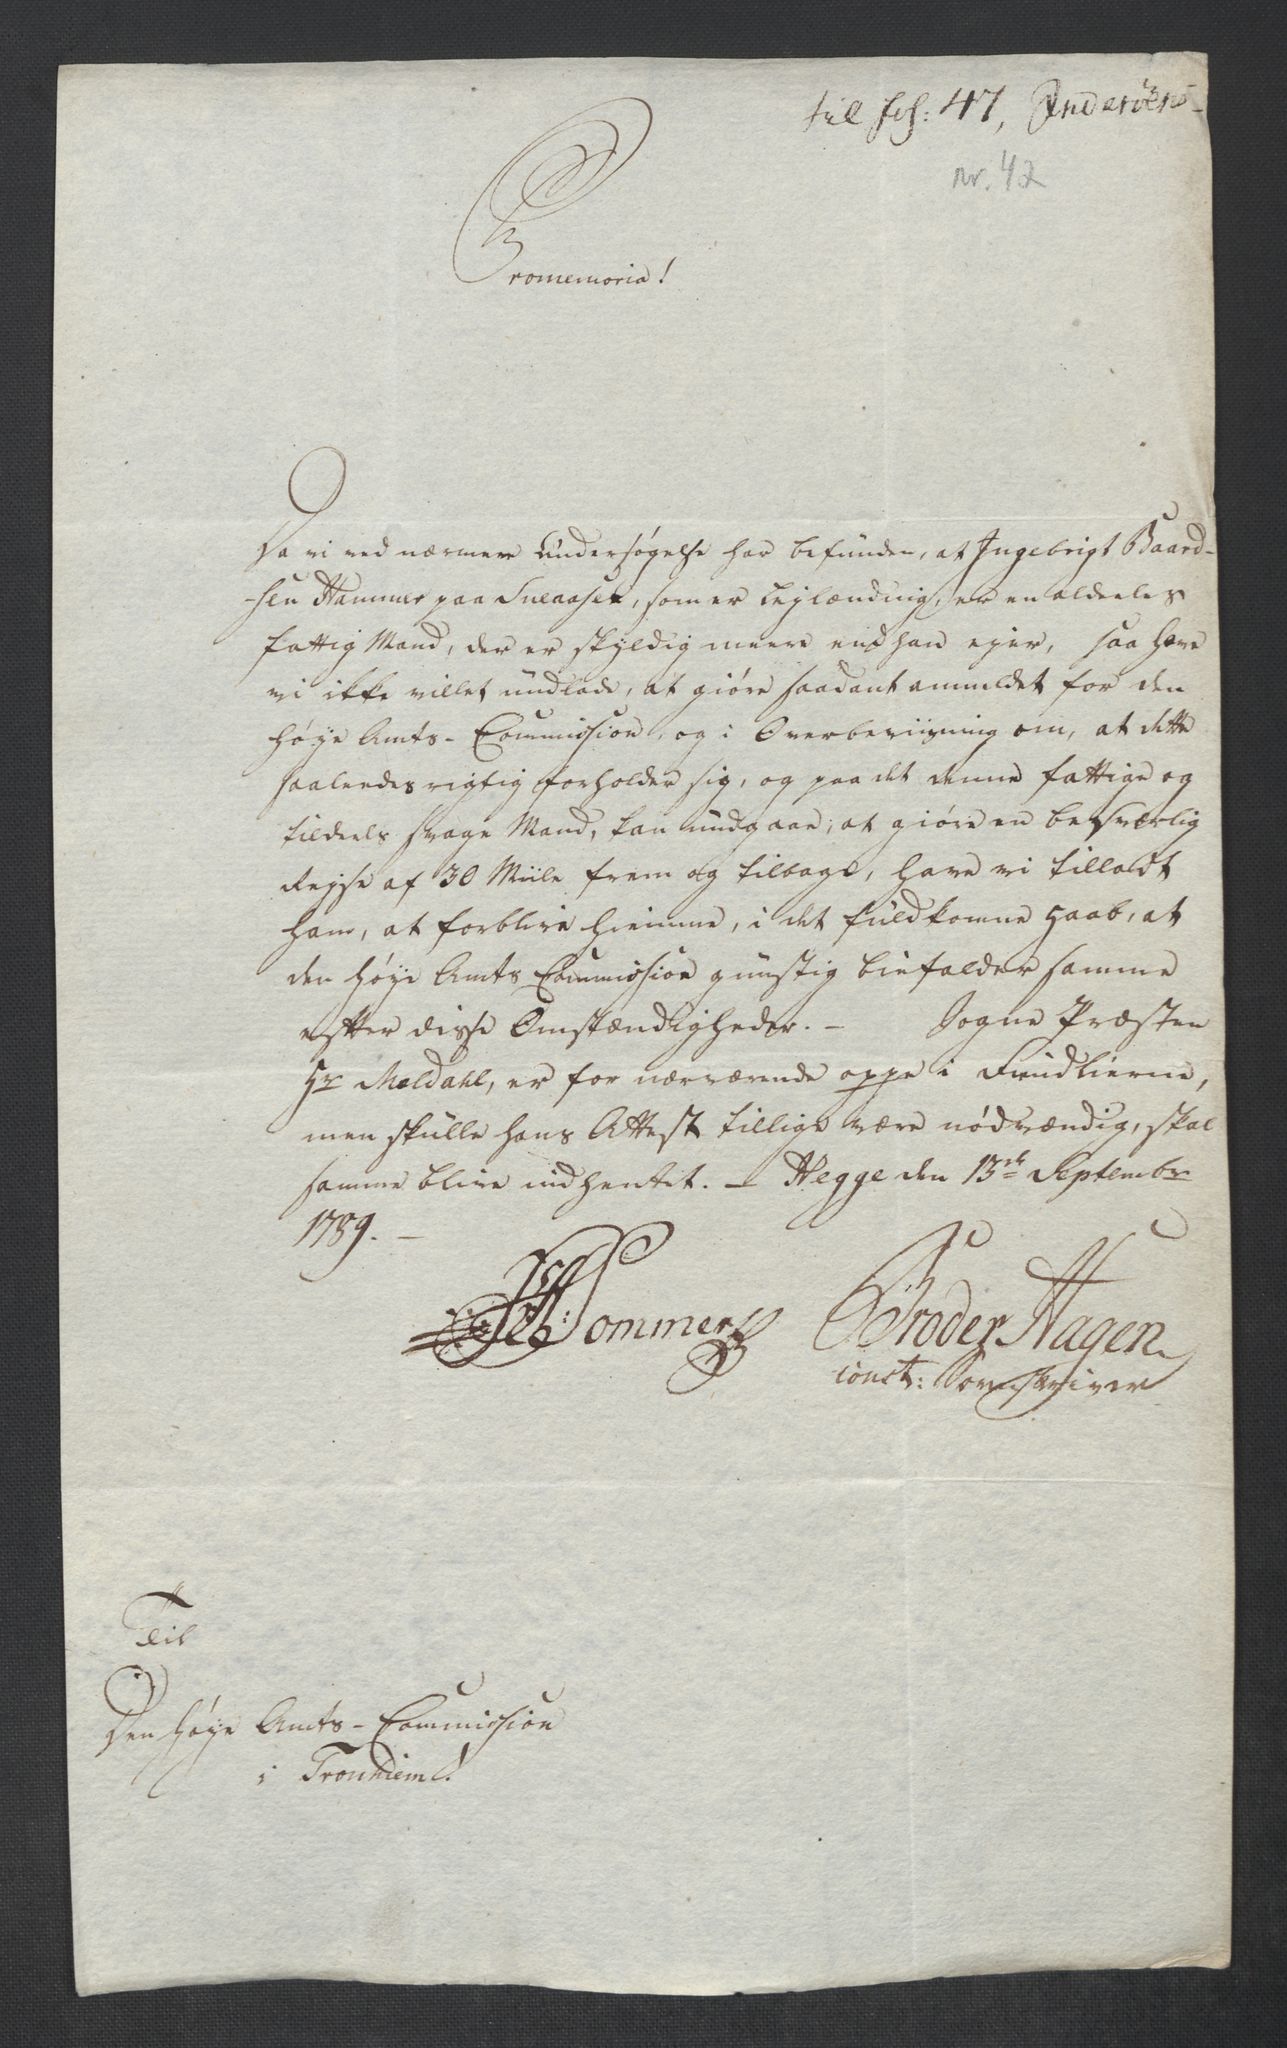 till fol: 47, Inderöens
nr. 42
Promemoria!
Da vi ved nærmere Undersøgelse har befunden, at Ingebrigt Baard-
-sen Hammer paa Snaasen, som er Lejlænding, er en aldeeles
fattig Mand, der er skyldig meere end han ejer, saa have
vi ikke villet undlade, at giøre saadant anmeldet for den
høye Amts-Commission, og i Overbeviisning om, at dette
saaleedes rigtig forholder sig, og paa det denne fattige og
tildeels svage Mand, kan undgaae, at giøre en besværlig
Reyse af 30 Miile frem og tilbage, have vi tilladt
ham, at forblive hiemme, i det fuldkomne Haab, at
den høye Amts Commission gunstig biefalder samme
efter disse Omstændigheder. - Sogne Præsten
Hr Meldahl, er for nærværende oppe i Findlierne,
men skulle hans Attest tillige være nødvændig, skal
samme blive indhentet. - Hegge den 13de Septembr
1789. -
Sommer Broder Hagen
const: Sorenskriver
Til
Den høye Amts-Commission
i Tronhiem!